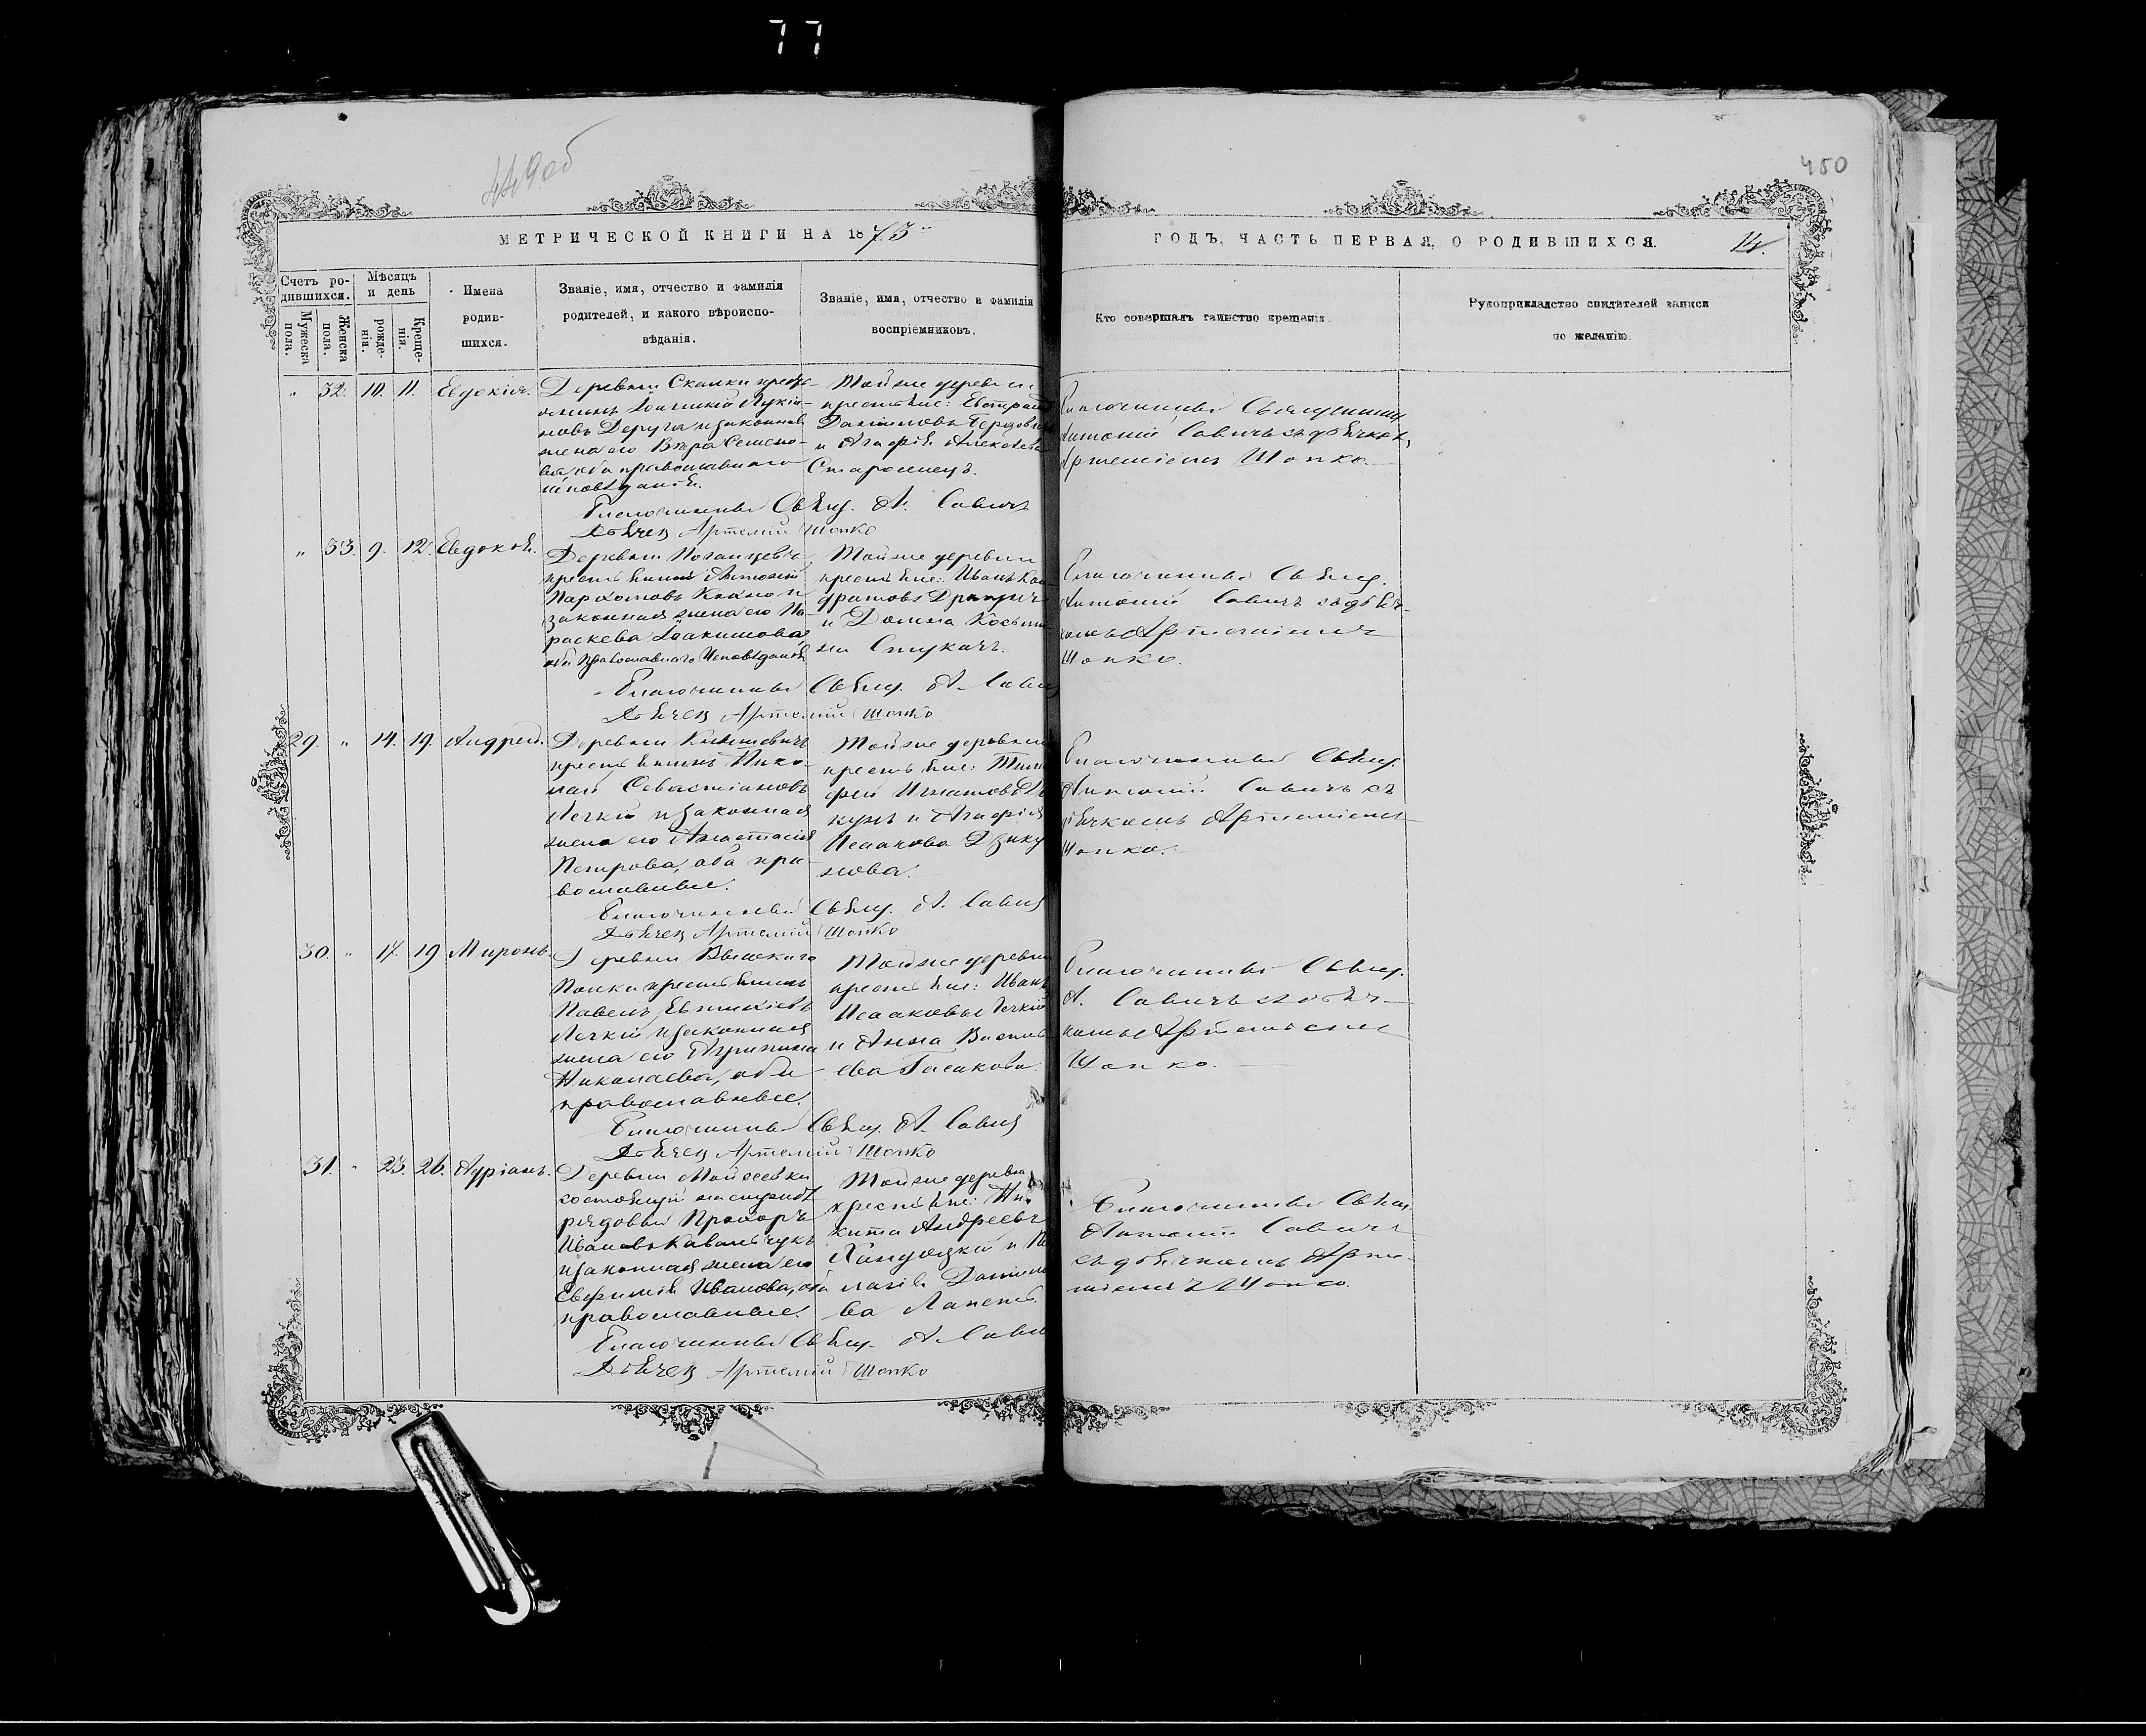 77
449об
450
МЕТРИЧЕСКОЙ КНИГИ НА 1873
ГОДЪ, ЧАСТЬ ПЕРВАЯ, О РОДИВШИХСЯ.
14.
Счетъ ро-
дившихся.
Мужеска
пола.
Женска
пола.
Мѣсяцъ
и день
рожде-
нія.
Креще-
нія.
Имена
родив-
шихся.
Званіе, имя, отчество и фамилія
родителей, и какого вѣроиспо-
вѣданія.
Званіе, имя, отчество и фамилія
воспріемниковъ.
Кто совершалъ таинство крещенія.
Рукоприкладство свидѣтелей записи
по желанію.
„ 32. 10. 11. Евдокія.
Деревни Скалки кресть-
янинъ
новъ Деруга и законная
жена его Вѣра Семено-
ва, оба православнаго
исповѣданія.
Тойже деревни
и Агафія Алексѣева
Благочинный Священникъ
Антоній Савичъ съ дьячкомъ
Артеміемъ Шопко.
Благочинный Свящ. А. Савичъ
Дьячекъ Артемій Шопко
„ 33. 9. 12. Евдокія.
Деревни
крестьянинъ Антоній
Пархомовъ
законная жена его Па-
раскева Іоакимова,
оба Православнаго Исповѣданія
Тойже деревни
крестьяне: Иванъ Кон-
дратовъ
и Домна
Благочинный Свящ.
Антоній Савичъ съ дьяч-
комъ Артеміемъ
Шопко.
Благочинный Свящ. А. Савичъ
Дьячекъ Артемій Шопко
29. „ 14. 19. Андрей.
Деревни
крестьянинъ Нико-
лай Севастіановъ
Легкій и законная
жена его Анастасія
Петрова, оба пра-
вославные.
Тойже деревни
крестьяне: Тимо-
фей Игнатовъ
и Агафія
Исакова
Благочинный Свящ.
Антоній Савичъ съ
дьячкомъ Артеміемъ
Шопко.
Благочинный Свящ. А. Савичъ
Дьячекъ Артемій Шопко
30. „ 17. 19 Миронъ.
Деревни
крестьянинъ
Павелъ
Легкій и законная
жена его Агрипина
Николаева, оба
православные.
Тойже деревни
крестьяне: Иванъ
Исааковъ Легкій
и Анна Василь-
ева
Благочинный Свящ.
А. Савичъ съ дьяч-
комъ Артеміемъ
Шопко.
Благочинный Свящ. А. Савичъ
Дьячекъ Артемій Шопко
31. „ 23. 26. Адріанъ.
Деревни Мойсеевки
состоящій на службѣ
рядовый Прохоръ
Ивановъ Ковальчукъ
и законная жена его
Евфимія Иванова, оба
православные.
Тойже деревни
крестьяне: Ни-
кита Андреевъ
Благочинный Свящ.
Антоній Савичъ
съ дьячкомъ Арте-
міемъ Шопко.
Благочинный Свящ. А. Савичъ
Дьячекъ Артемій Шопко